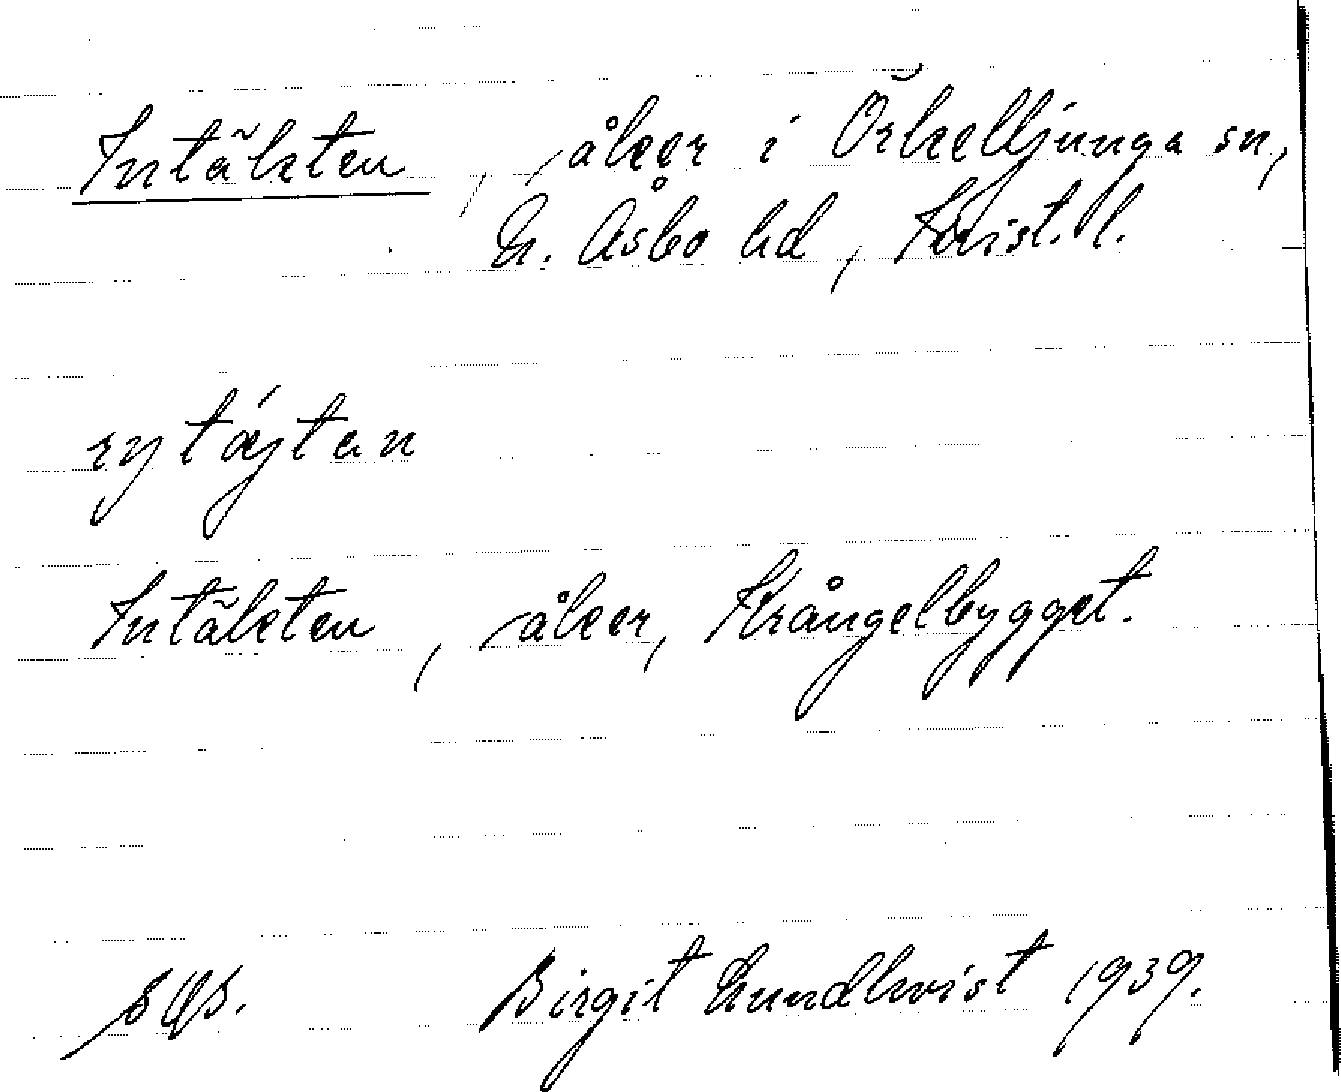 Intäkten, åker i Örkelljunga sn,
N. Åsbo hd, Krist. l.
Intäkten, åker, Krångelbygget.
Birgit Lundkvist 1939.